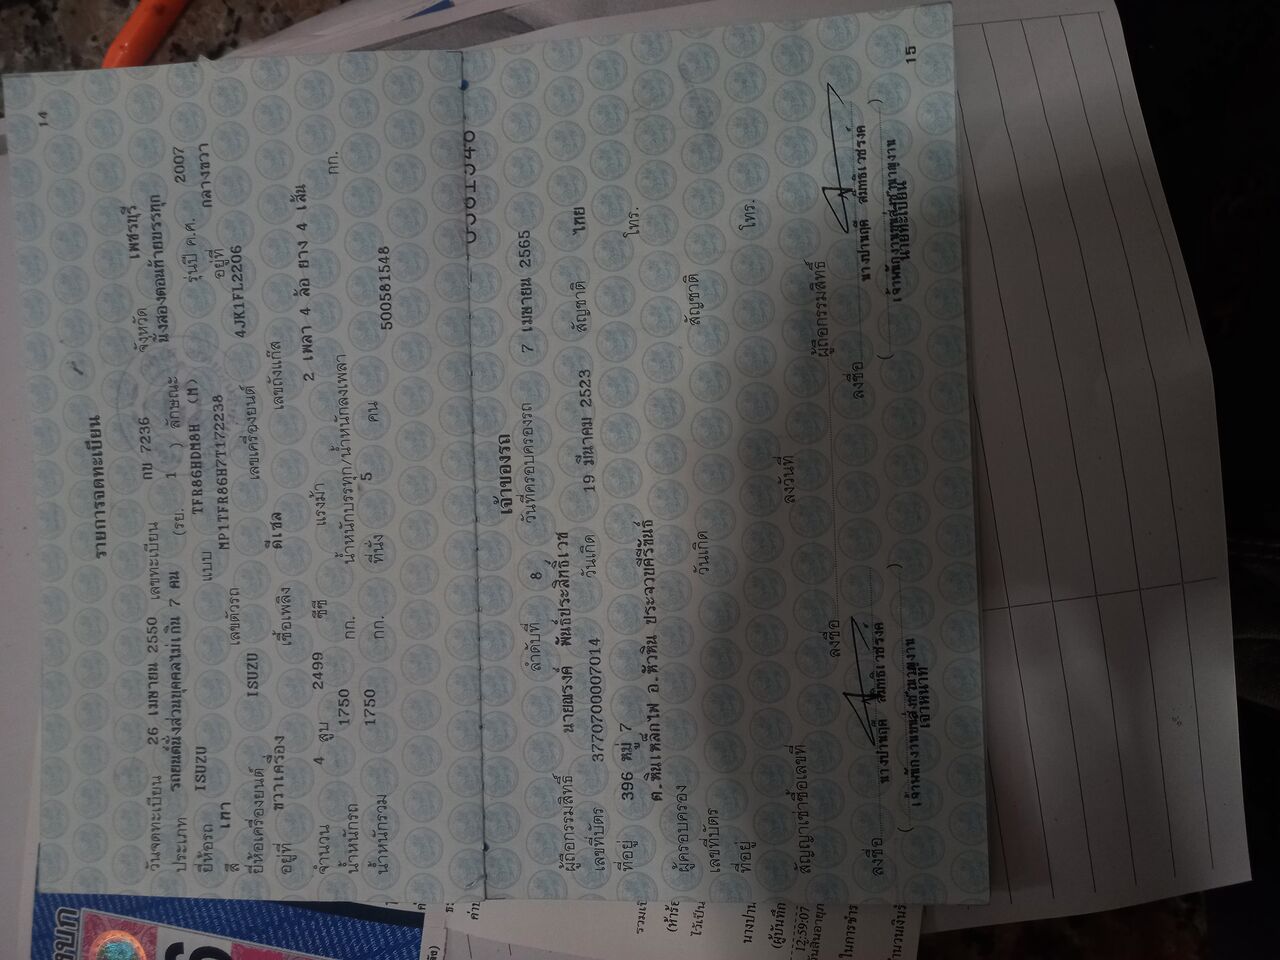 14
รายการจดทะเบียน
วันจดทะเบียน 26 เมษายน 2550 เลขทะเบียน กข 7236 จังหวัด เพชรบุรี
ประเภท รถยนต์นั่งส่วนบุคคลไม่เกิน 7 คน (รย. 1 ) ลักษณะ นั่งสองตอนท้ายบรรทุก
ยี่ห้อรถ ISUZU แบบ TFR86HDM8H (M) รุ่นปี ค.ศ. 2007
สี เทา เลขตัวรถ MP1TFR86H7T172238 อยู่ที่ กลางขวา
ยี่ห้อเครื่องยนต์ ISUZU เลขเครื่องยนต์ 4JK1FL2206
อยู่ที่ ขวาเครื่อง เชื้อเพลิง ดีเซล เลขถังแก๊ส
จำนวน 4 สูบ 2499 ซีซี แรงม้า 2 เพลา 4 ล้อ ยาง 4 เส้น
น้ำหนักรถ 1750 กก. น้ำหนักบรรทุก/น้ำหนักลงเพลา กก.
น้ำหนักรวม 1750 กก. ที่นั่ง 5 คน 500581548
เจ้าของรถ
ลำดับที่ 8 วันที่ครอบครองรถ 7 เมษายน 2565
ผู้ถือกรรมสิทธิ์ นายณรงค์ พันธ์ประสิทธิ์เวช
เลขที่บัตร 3770700007014 วันเกิด 19 มีนาคม 2523 สัญชาติ ไทย
ที่อยู่ 396 หมู่ 7 โทร.
ต.หินเหล็กไฟ อ.หัวหิน ประจวบคีรีขันธ์
ผู้ครอบครอง
เลขที่บัตร วันเกิด สัญชาติ
ที่อยู่ โทร.
สัญญาเช่าซื้อเลขที่ ลงวันที่ ผู้ถือกรรมสิทธิ์
ลงชื่อ ลงชื่อ
ลงชื่อ
เจ้าหน้าที่ นายทะเบียน
15
12:59:07